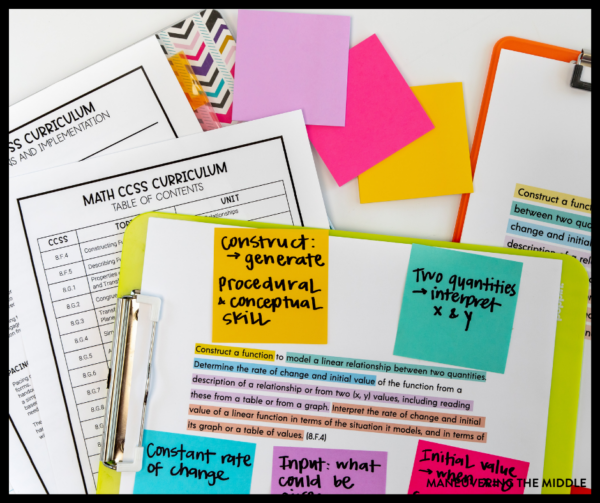 SS CURRICULUM
NS AND IMPLEMENTATION
MATH CCSS CURRICULUM
TABLE OF CONTENTS
CCSS
UNIT
8.F.4 Constructing
8.F.5 Describing
8.G.1 Properties
8.G.2
8.G.3
8.G.4
8.G.5
8.G.6
8.G.7
8.G.8
Construct:
→ generate
procedural
& conceptual
skill
Two quantities
→ interpret
x & y
Construct a function to model a linear relationship between two quantities.
Determine the rate of change and initial value of the function from a
description of a relationship or from two (x, y) values, including reading
these from a table or from a graph. Interpret the rate of change and initial
value of a linear function in terms of the situation it models, and in terms of
its graph or a table of values. (8.F.4)
Constant rate
of change
Input: what
could be
Initial value
→ when
Construct a func
between two qua
change and initial
description of a re
MANEUVERING THE MIDDLE